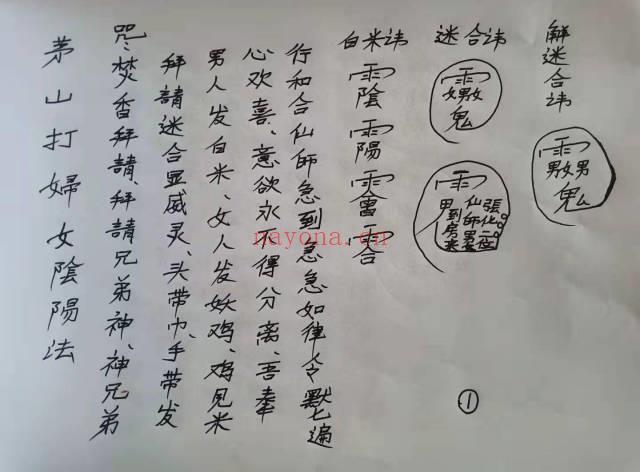 茅山打婦女陰陽法
咒:焚香拜請、拜請兄弟神、神兄弟
拜請迷合显威灵、头带巾、手带发
男人发白米、女人发妖鸡、鸡见米
心欢喜、意欲永不得分离、吾奉
行和合仙师急到急急如律令默七遍
白米讳
迷合讳
解迷合讳
①
nayona.cn